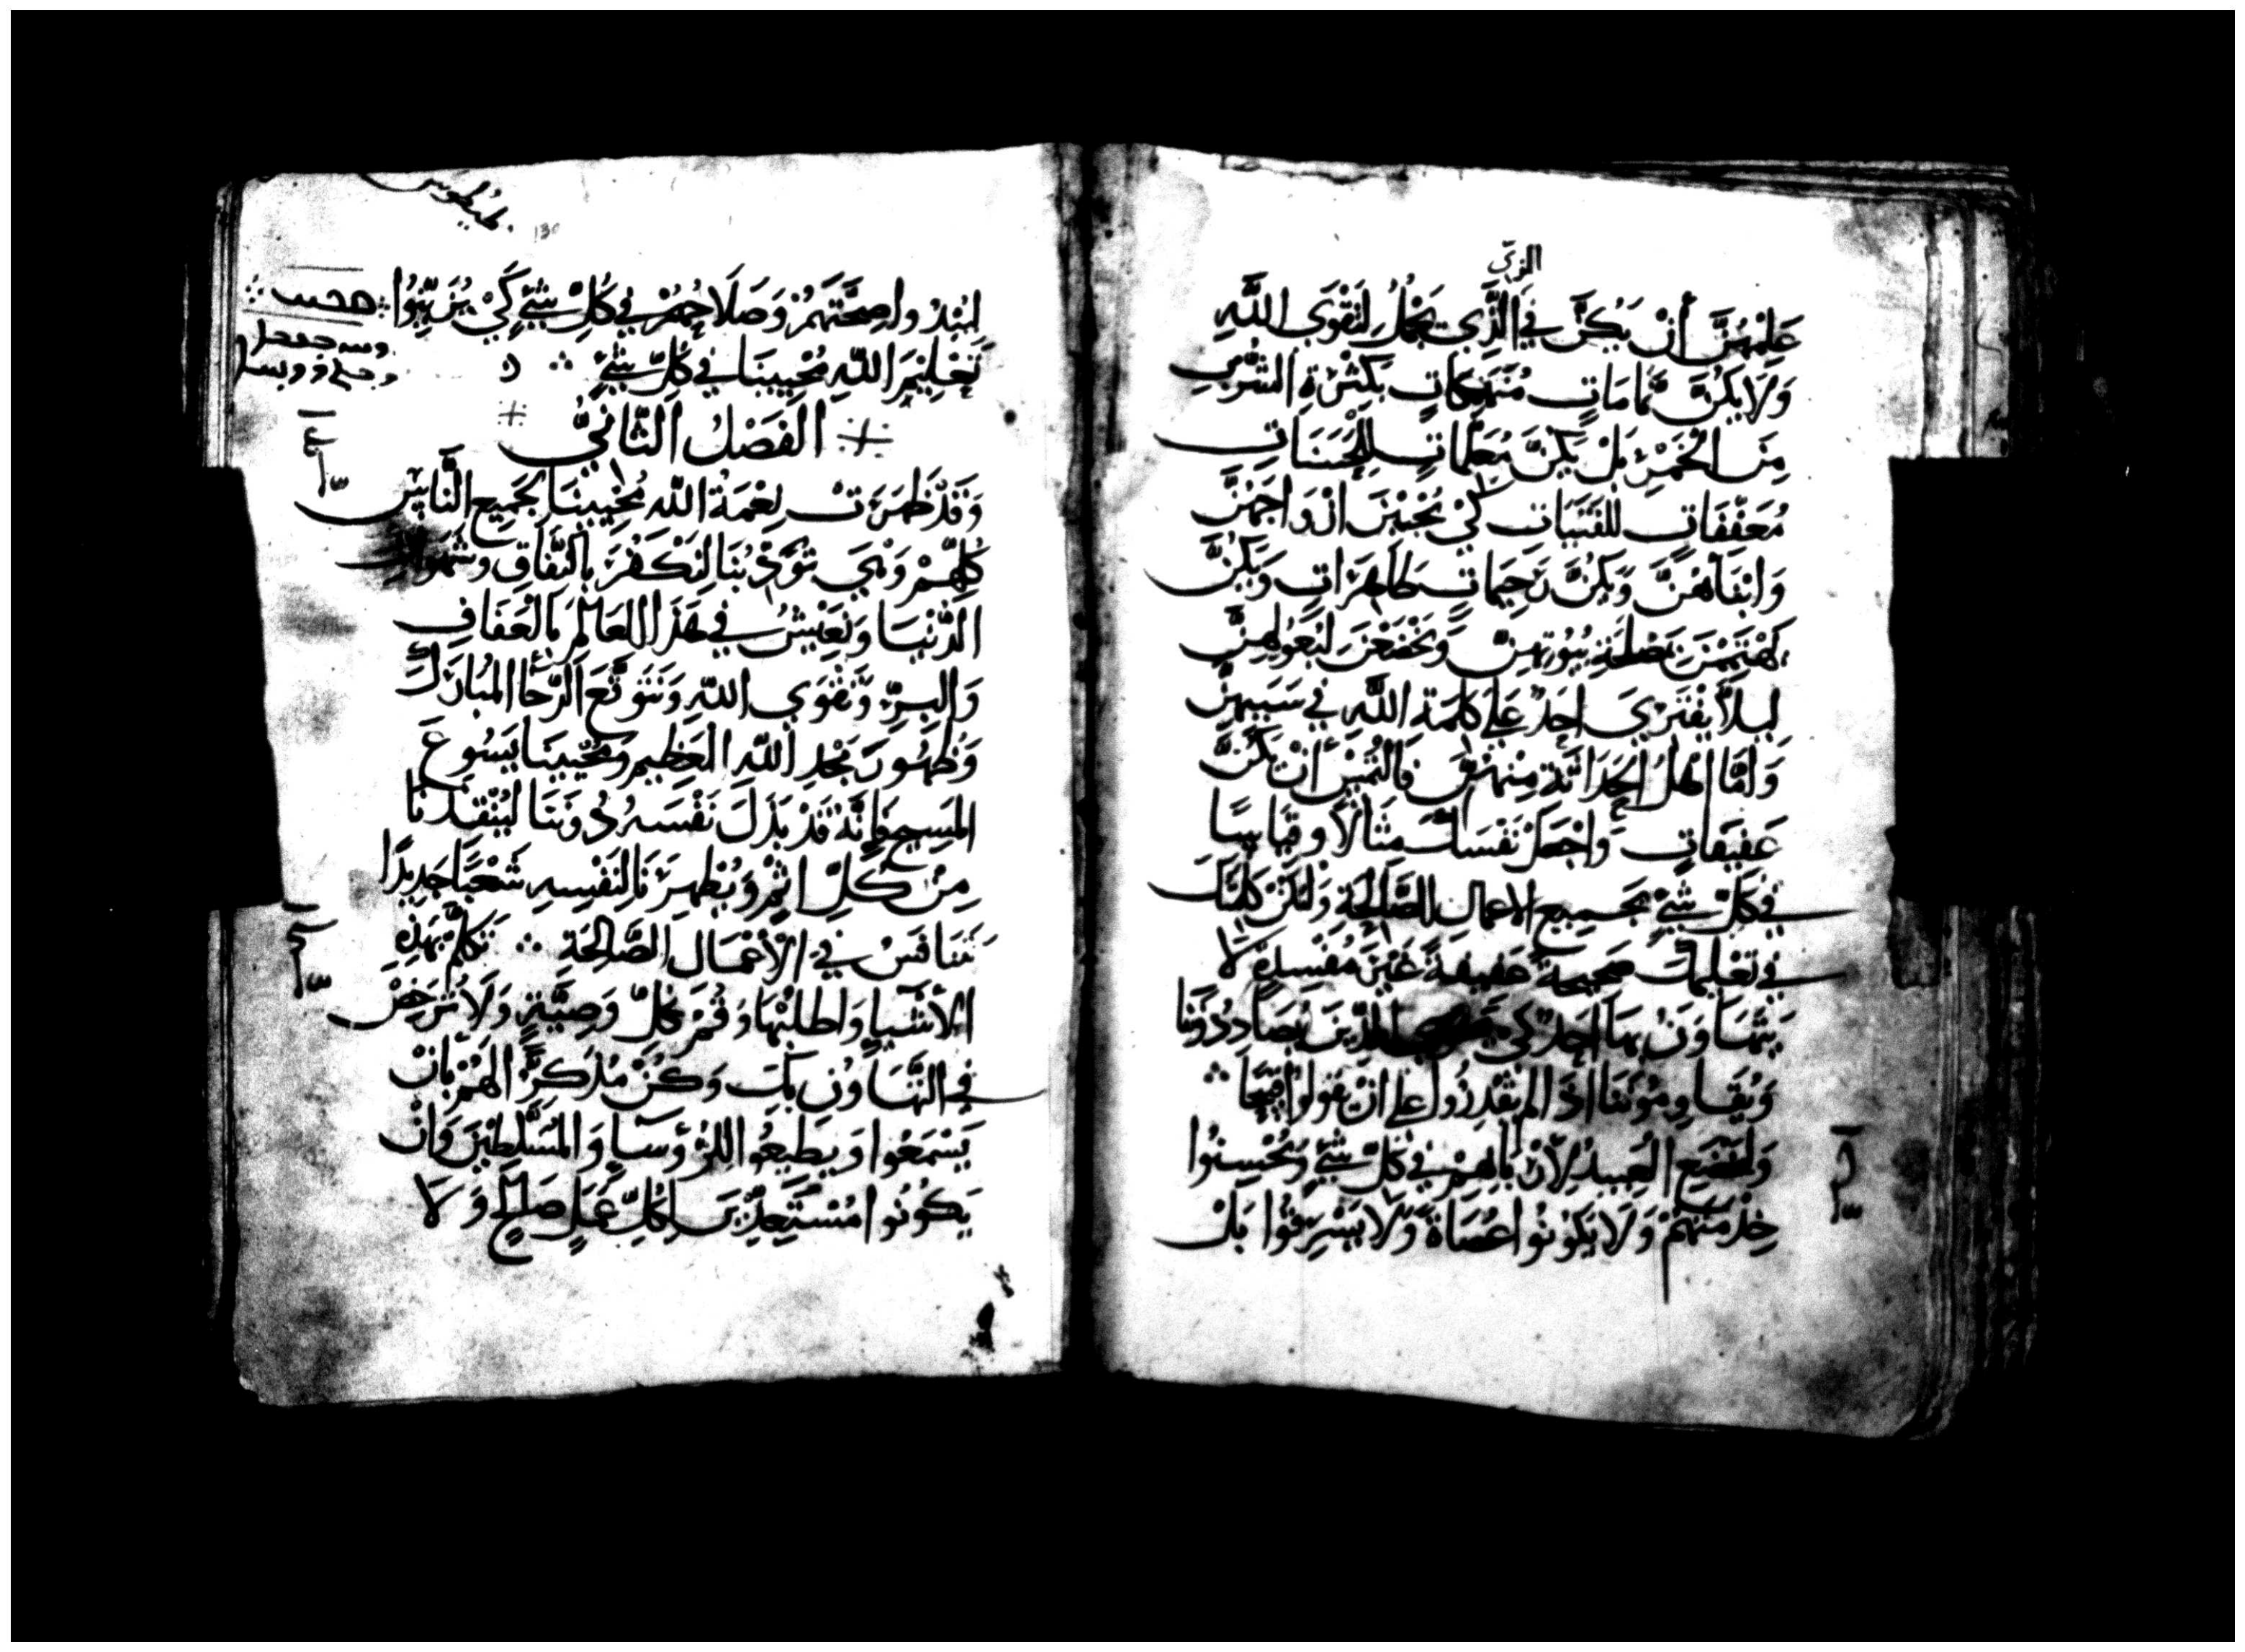 الزي
عليهن أن يكن في الذي يجمل لتقوى الله
ولا يكن نمامات منهمكات بكثرة الشرب
من الخمر بل يكن معلمات للحسنات
معففات للفتيات كي يحببن ازواجهن
وابناهن ويكن رحيمات طاهرات ويكن
يهتممن بمصلحة بيوتهن ويخضعن لبعولهن
ليلا يفتري احد على كلمة الله في سببهن
واما اهل الحداثة منهن فالتمس أن يكن
عفيفات واجعل نفسك مثالا وقياسا
في كل شي بجميع الاعمال الصالحة ولتكن كلمتك
في تعليمك صحيحة عفيفة غير مفسدة لا
يتهاون بها احد كي الذين يضاددوننا
ويقاومونا اذ لم يقدروا على ان يقولوا قبيحا
ولتخضع العبيد لأربابهم في كل شي ويحسنوا
خدمتهم ولا يكونوا عصاة ولا يسرقوا بل
طيطوس
130
ليبدوا صحتهم وصلاحهم في كل شي كي يزينوا
تعليم الله محيينا في كل شي
الفصل الثاني
وقد ظهرت نعمة الله محيينا لجميع الناس
كلهم وهي تؤدبنا لنكفر بالنفاق وشهوات
الدنيا ونعيش في هذا العالم بالعفاف
والبر وتقوى الله ونتوقع الرجا المبارك
وظهور مجد الله العظيم ومحيينا يسوع
المسيح فانه قد بذل نفسه دوننا لينقذنا
من كل اثم ويطهرنا لنفسه شعبا جديدا
نتنافس في الأعمال الصالحة تكلم بهذه
الأشيا واطلبها وقم بكل وصية ولا ترخص
في التهاون بك وكن مذكرا لهم بان
يسمعوا ويطيعوا للرؤسا والمسلطين وان
يكونوا مستعدين لكل عمل صالح ولا